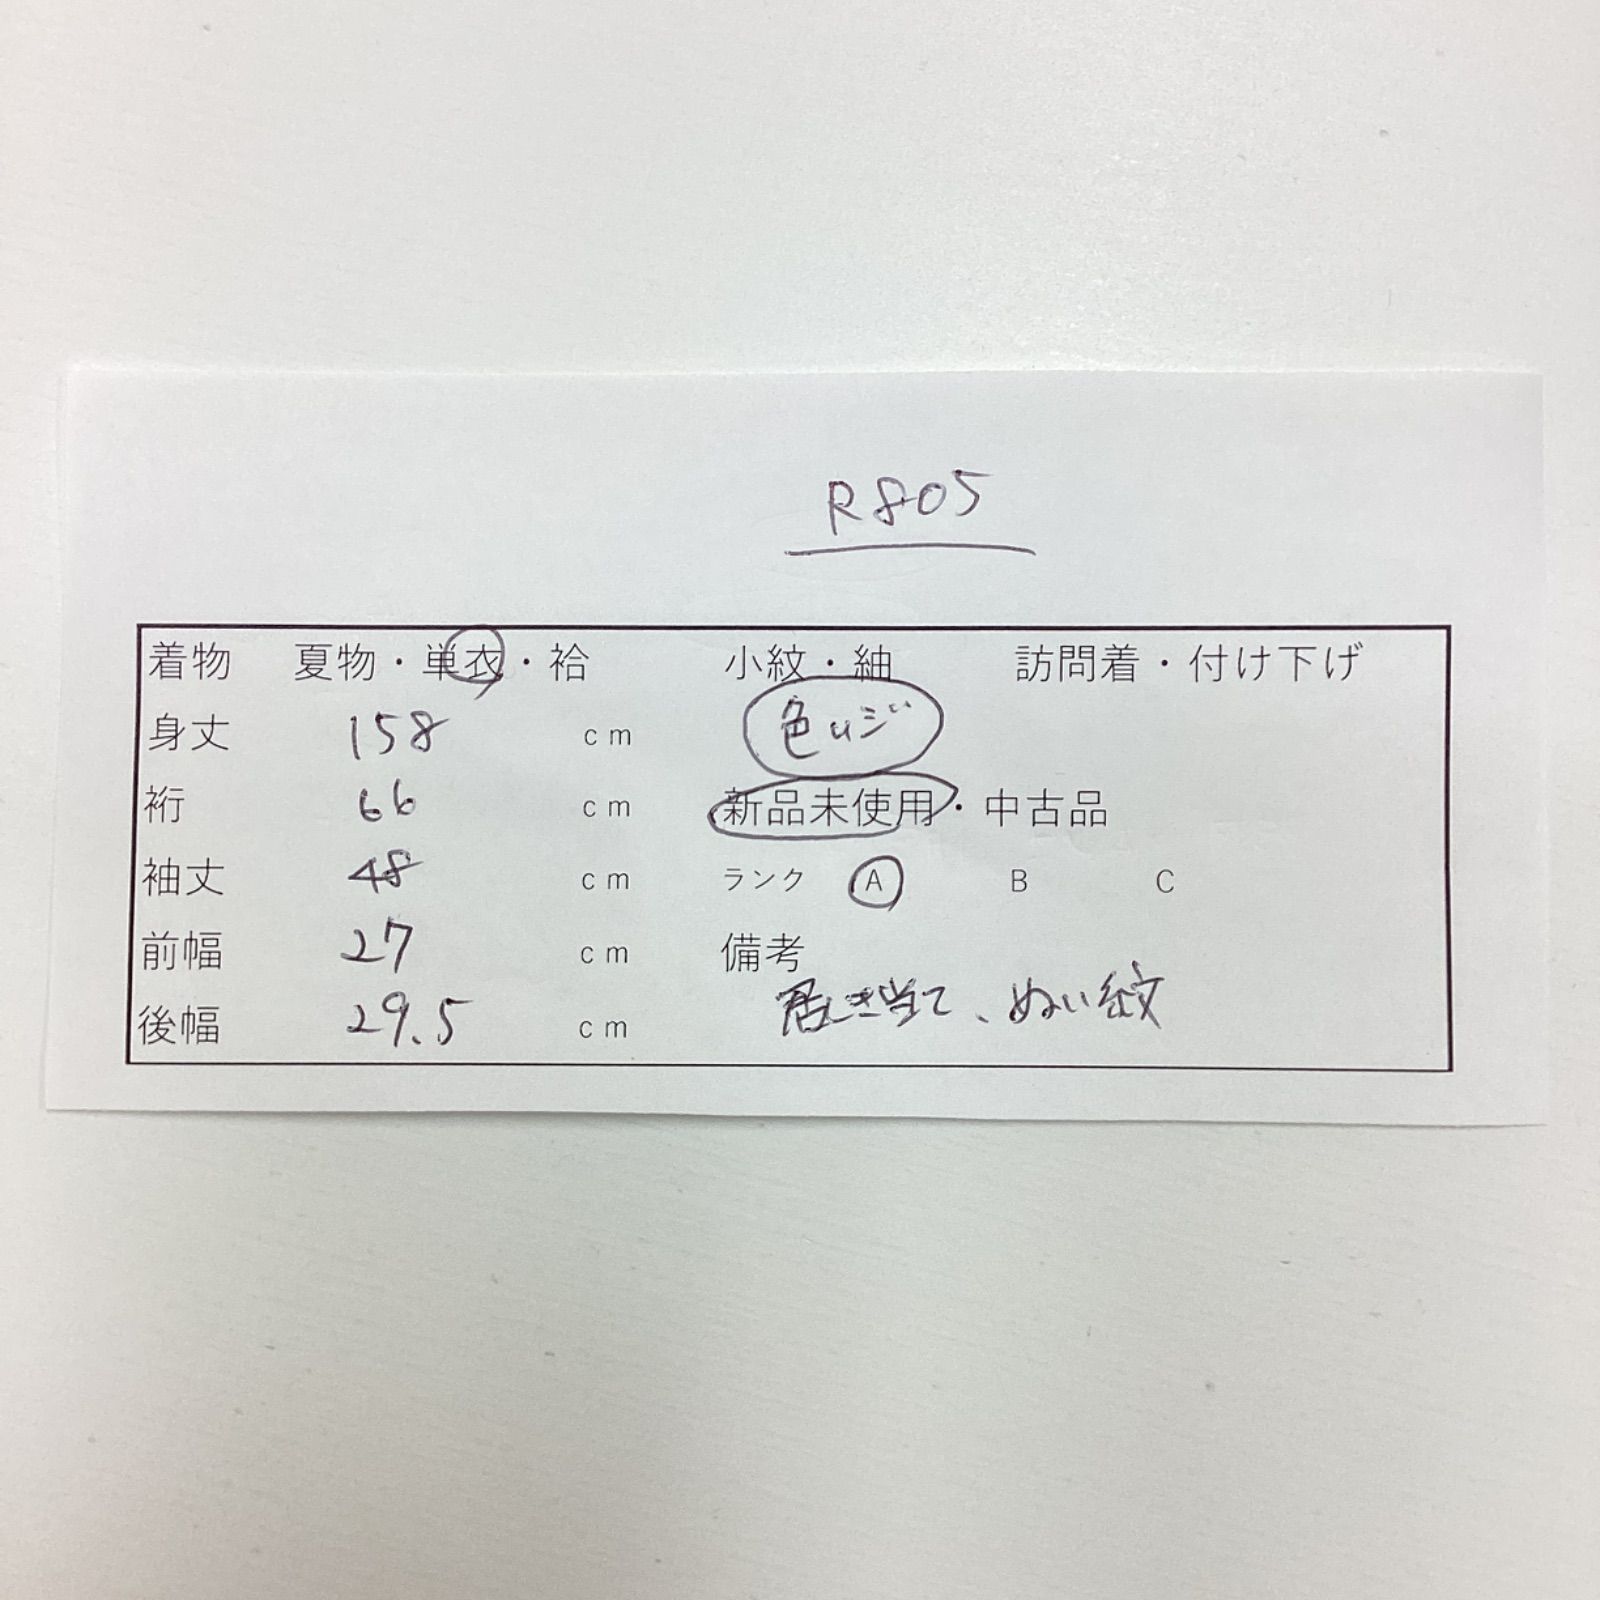 R805
着物 夏物・単衣・袷 小紋・紬 訪問着・付け下げ
身丈 158 cm 色ムジ
裄 66 cm 新品未使用・中古品
袖丈 48 cm ランク A B C
前幅 27 cm 備考
後幅 29.5 cm 居しき当て、ぬい紋